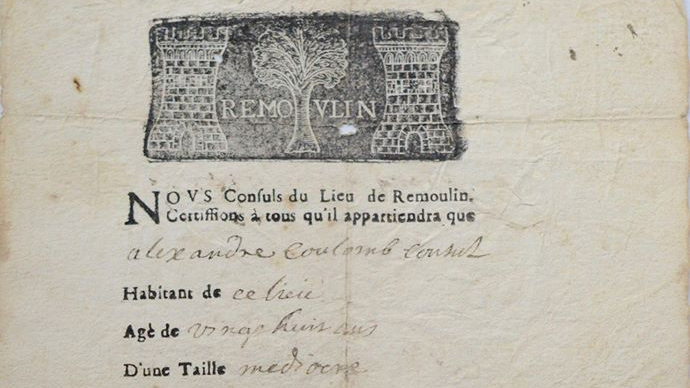 REMOULIN
NOVS Consuls du Lieu de Remoulin,
Certiffions à tous qu'il appartiendra que
alexandre coulomb consul
Habitant de ce lieu
Agè de vingt huit ans
D'une Taille mediocre